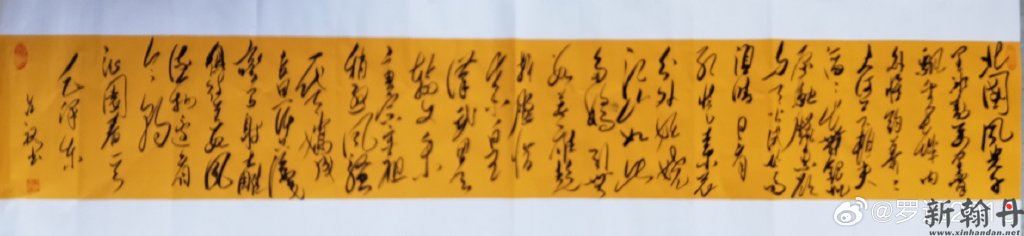 北国风光千
里冰封万里雪
飘望长城内
外惟余莽莽
大河上下顿失
滔滔山舞银蛇
原驰蜡象欲
与天公试比高
须晴日看
红装素裹
分外妖娆
江山如此
多娇引无
数英雄竞
折腰惜
秦皇
汉武略
输文采
唐宗宋祖
稍逊风骚
一代天骄成
吉思汗只识
弯弓射大雕
俱往矣数风
流人物还看
今朝
沁园春雪
毛泽东
书
@罗
新翰丹
www.xinhandan.net